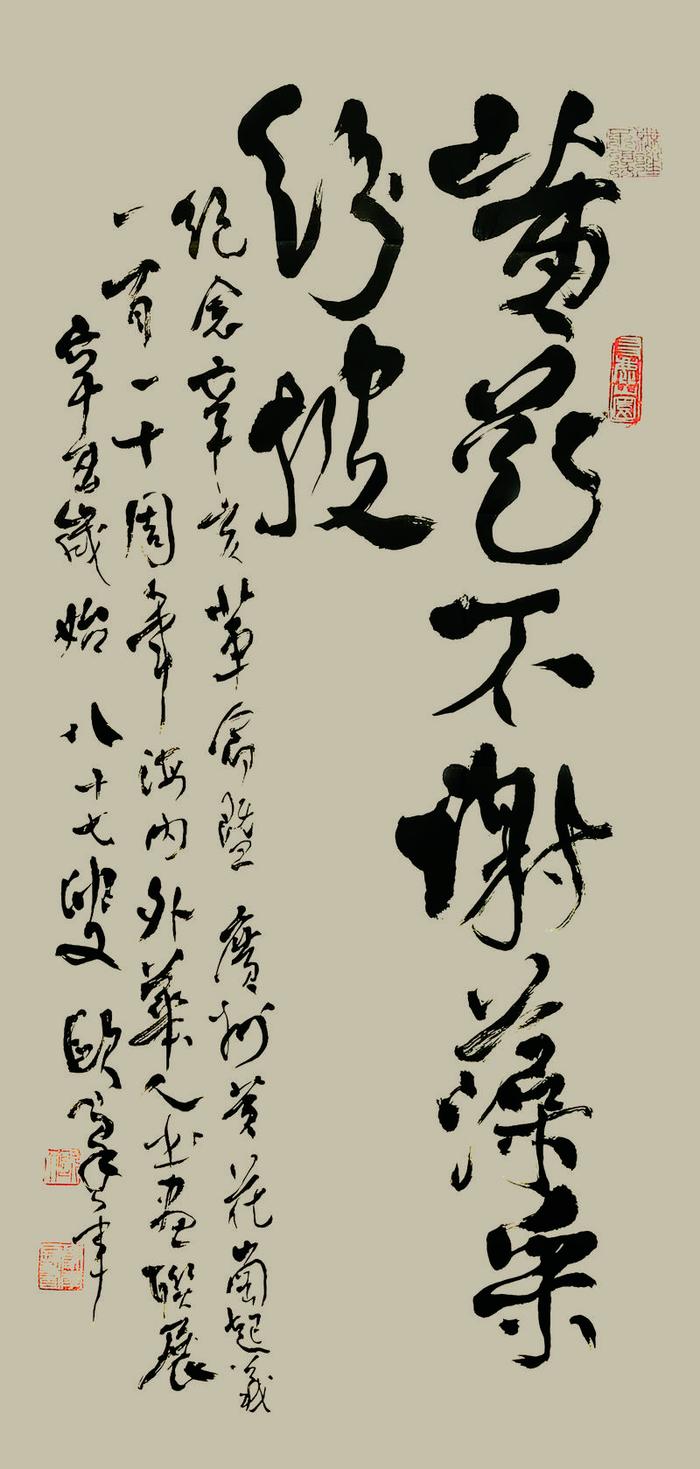 黃花不謝藻采
紛披
紀念辛亥革命暨廣州黃花崗起義
一百一十周年海内外華人書畫聯展
辛丑歲始 八十七叟 歐